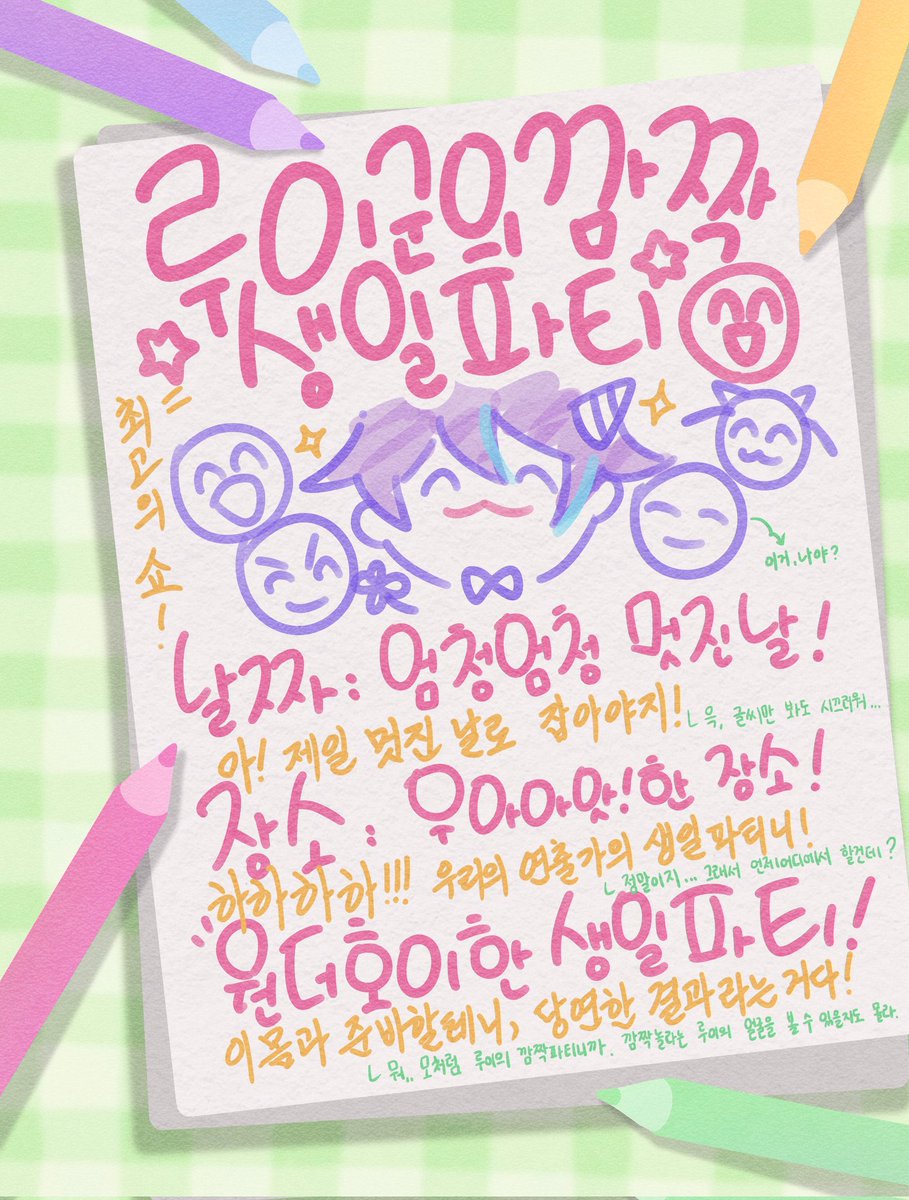 루이군의 깜짝
생일파티
최고의 쇼!
이거, 나야?
날짜: 엄청엄청 멋진날!
아! 제일 멋진 날로 잡아야지!
ㄴ 윽, 글씨만 봐도 시끄러워...
장소: 우아아앗!한 장소!
하하하하!!! 우리의 연출가의 생일파티니!
ㄴ 정말이지... 그래서 언제어디에서 할건데?
"원더호이한 생일파티!
이몸과 준비할테니, 당연한 결과라는거다!
ㄴ 뭐.. 모처럼 루이의 깜짝파티니까. 깜짝놀라는 루이의 얼굴을 볼 수 있을지도 몰라.